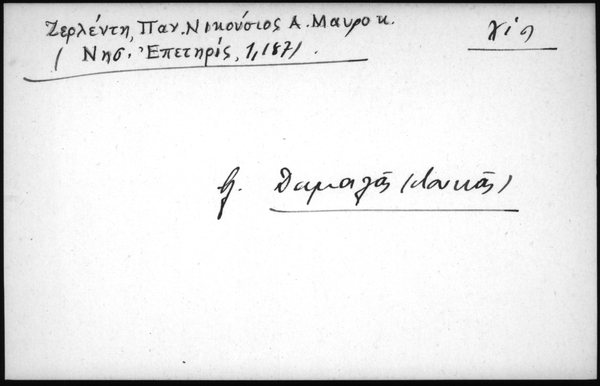 Ζερλέντη, Παν. Νικούσιος Α. Μαυροκ.
( Νησ. Ἐπετηρίς, 1, 187) .
Δαμαλᾶς (Λουκᾶς)